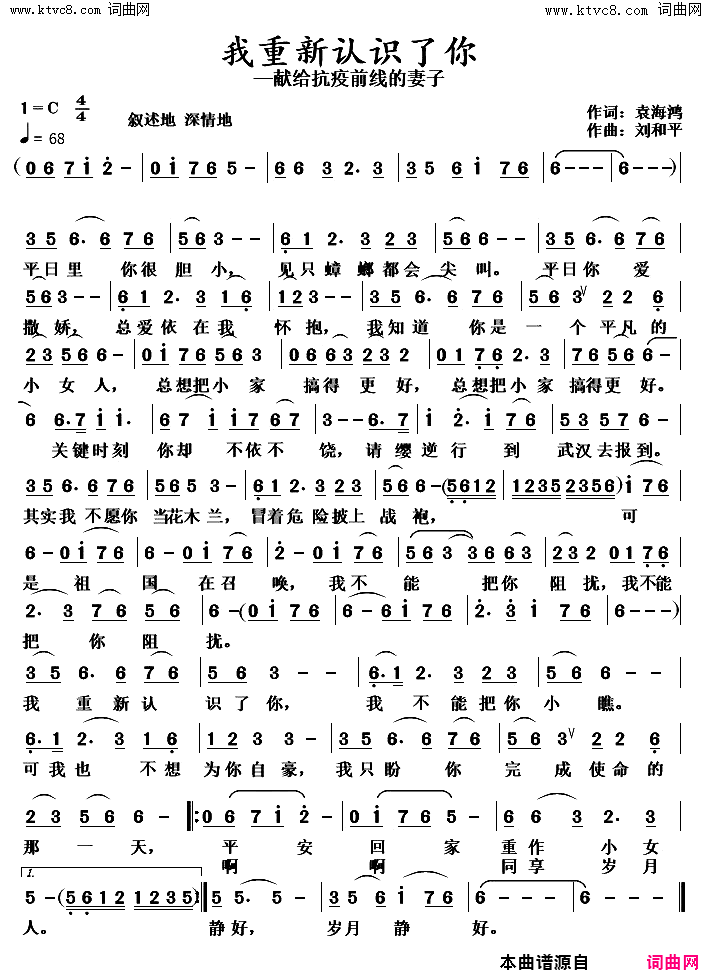 www.ktvc8.com 词曲网 www.ktvc8.com 词曲网
我重新认识了你
—献给抗疫前线的妻子
1=C 4/4 叙述地 深情地 作词：袁海鸿
♩=68 作曲：刘和平
(0 6 7 i 2 - | 0 i i 7 6 5 - | 6 6 3 2. 3 | 3 5 6 i 7 6 | 6 - - - | 6 - - -)|
3 5 6. 6 7 6 | 5 6 3 - - | 6 1 2. 3 2 3 | 5 6 6 - - | 3 5 6. 6 7 6 |
平日里 你很胆小， 见只蟑螂都会尖叫。 平日你 爱
5 6 3 - - | 6 1 2. 3 1 6 | 1 2 3 - - | 3 5 6. 6 7 6 | 5 6 3 V 2 2 6 |
撒娇， 总爱依在我 怀抱， 我知道 你是一个平凡的
2 3 5 6 6 - | 0 i 7 6 5 6 3 | 0 6 6 3 2 3 2 | 0 1 7 6 2. 3 | 7 6 5 6 6 - |
小女人， 总想把小家 搞得更好， 总想把小家 搞得更好。
6 6. 7 i i. | 6 7 i i 7 6 7 | 3 - - 6. 7 | i 2. i 7 | 5 3 5 7 6. |
关键时刻 你却 不依不 饶， 请缨逆行 到 武汉去报到。
3 5 6. 6 7 6 | 5 6 3 5 - | 6 1 2. 3 2 3 | 5 6 6 - (5 6 1 2 | 1 2 3 5 2 3 5 6) i 7 6 |
其实我 不愿你 当花木兰， 冒着危险披上 战袍， 可
6 - 0 i 7 6 | 6 - 0 i 7 6 | 2. i 7 6 | 5 6 3 3 6 6 3 | 2 3 2 0 1 7 6 |
是 祖 国 在召 唤， 我不 能 把你 阻扰，我不能
2. 3 7 6 5 6 | 6 - (0 i 7 6 | 6 - 6 i 7 6 | 2. 3 i 7 6 | 6 - - -)|
把 你 阻 扰。
3 5 6. 6 7 6 | 5 6 3 - - | 6. 1 2. 3 2 3 | 5 6 6 - - |
我 重新认 识了你， 我 不能把你 小瞧。
6. 1 2. 3 1 6 | 1 2 2 3 - | 3 5 6. 6 7 6 | 5 6 3 V 2 2 6 |
可我也 不想 为你自豪， 我只盼 你 完成使命的
2 3 5 6 6 - ‖: 0 6 7 i 2 - | 0 i i 7 6 5 - | 6 6 3 2. 3 |
那一天， 平 安 回 家 重作 小女
啊 啊 同享 岁月
1.
5 - (5 6 1 2 1 2 3 5) :‖ 5 5. 5 - | 3 5 6 i 7 6 | 6 - - - | 6 - - - ‖
人。 静好， 岁月 静 好。
本曲谱源自 词曲网